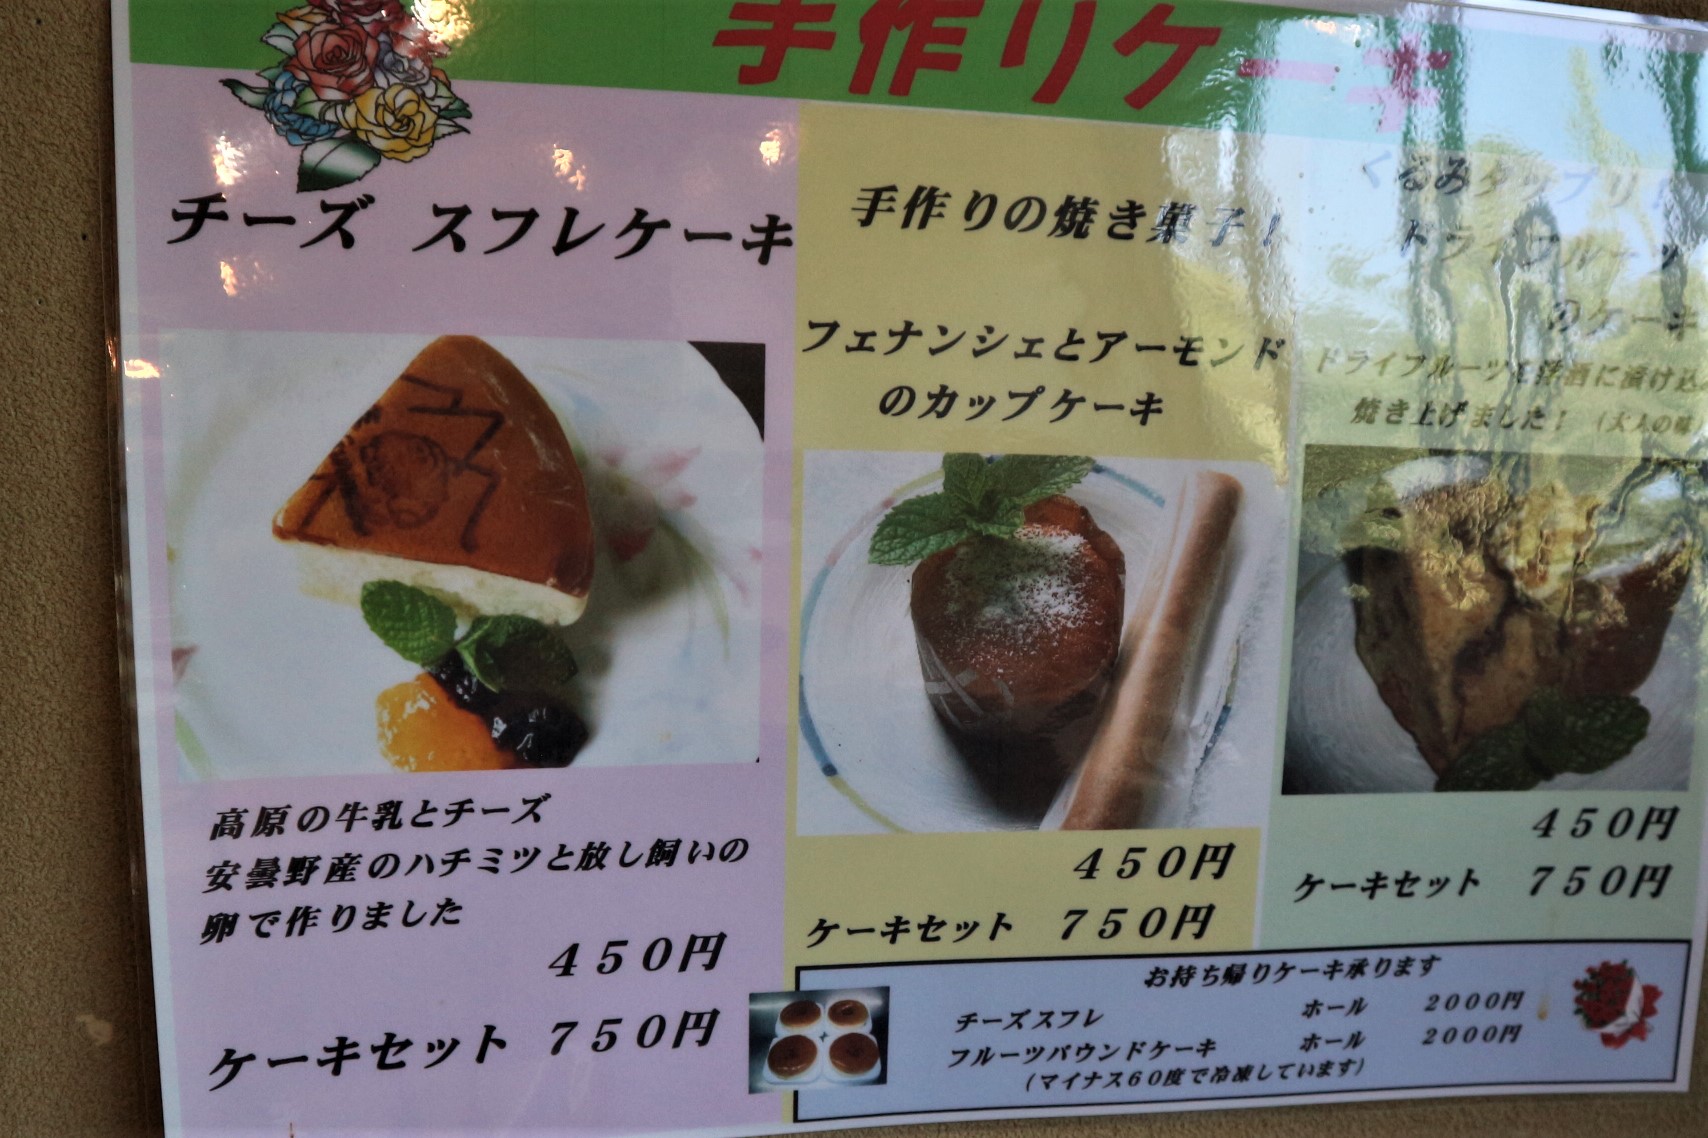 手作りケーキ
チーズ スフレケーキ
高原の牛乳とチーズ
安曇野産のハチミツと放し飼いの
卵で作りました
450円
ケーキセット 750円
手作りの焼き菓子!
フェナンシェとアーモンド
のカップケーキ
450円
ケーキセット 750円
くるみタップリ!
ドライフルーツ
のケーキ
ドライフルーツを洋酒に漬け込
焼き上げました! (大人の味
450円
ケーキセット 750円
お持ち帰りケーキ承ります
チーズスフレ ホール 2000円
フルーツパウンドケーキ ホール 2000円
(マイナス60度で冷凍しています)